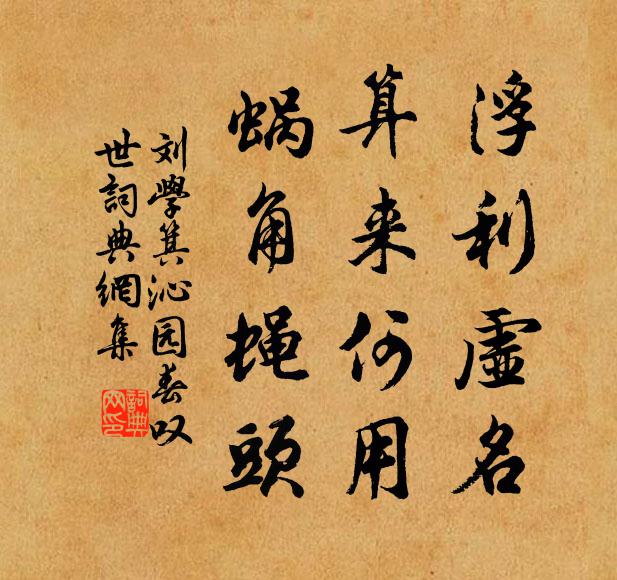 浮利虚名
算来何用
蜗角蝇頭
刘學箕沁园春叹
世詞典網集
詞典
网印